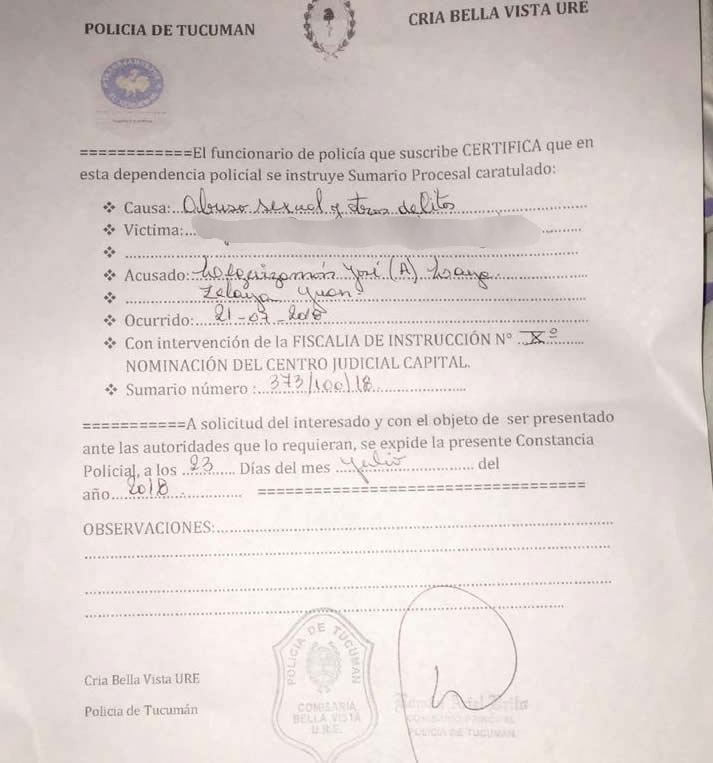 POLICIA DE TUCUMAN
CRIA BELLA VISTA URE
============El funcionario de policía que suscribe CERTIFICA que en
esta dependencia policial se instruye Sumario Procesal caratulado:
❖ Causa:..Abuso sexual y otros delitos
❖ Victima:...
❖ ...
❖ Acusado: José (A)
❖ Zelaya Juan.
❖ Ocurrido: 21-07-2018
❖ Con intervención de la FISCALIA DE INSTRUCCIÓN N° ..Xº
NOMINACIÓN DEL CENTRO JUDICIAL CAPITAL.
❖ Sumario número :..373/100/18
===========A solicitud del interesado y con el objeto de ser presentado
ante las autoridades que lo requieran, se expide la presente Constancia
Policial, a los ..23..... Días del mes ..Julio.. del
año...2018 ===================================
OBSERVACIONES:...
POLICIA DE TUCUMAN
COMISARIA
BELLA VISTA
U.R.E.
Cria Bella Vista URE
Policia de Tucumán
COMISARIO PRINCIPAL
POLICIA DE TUCUMAN